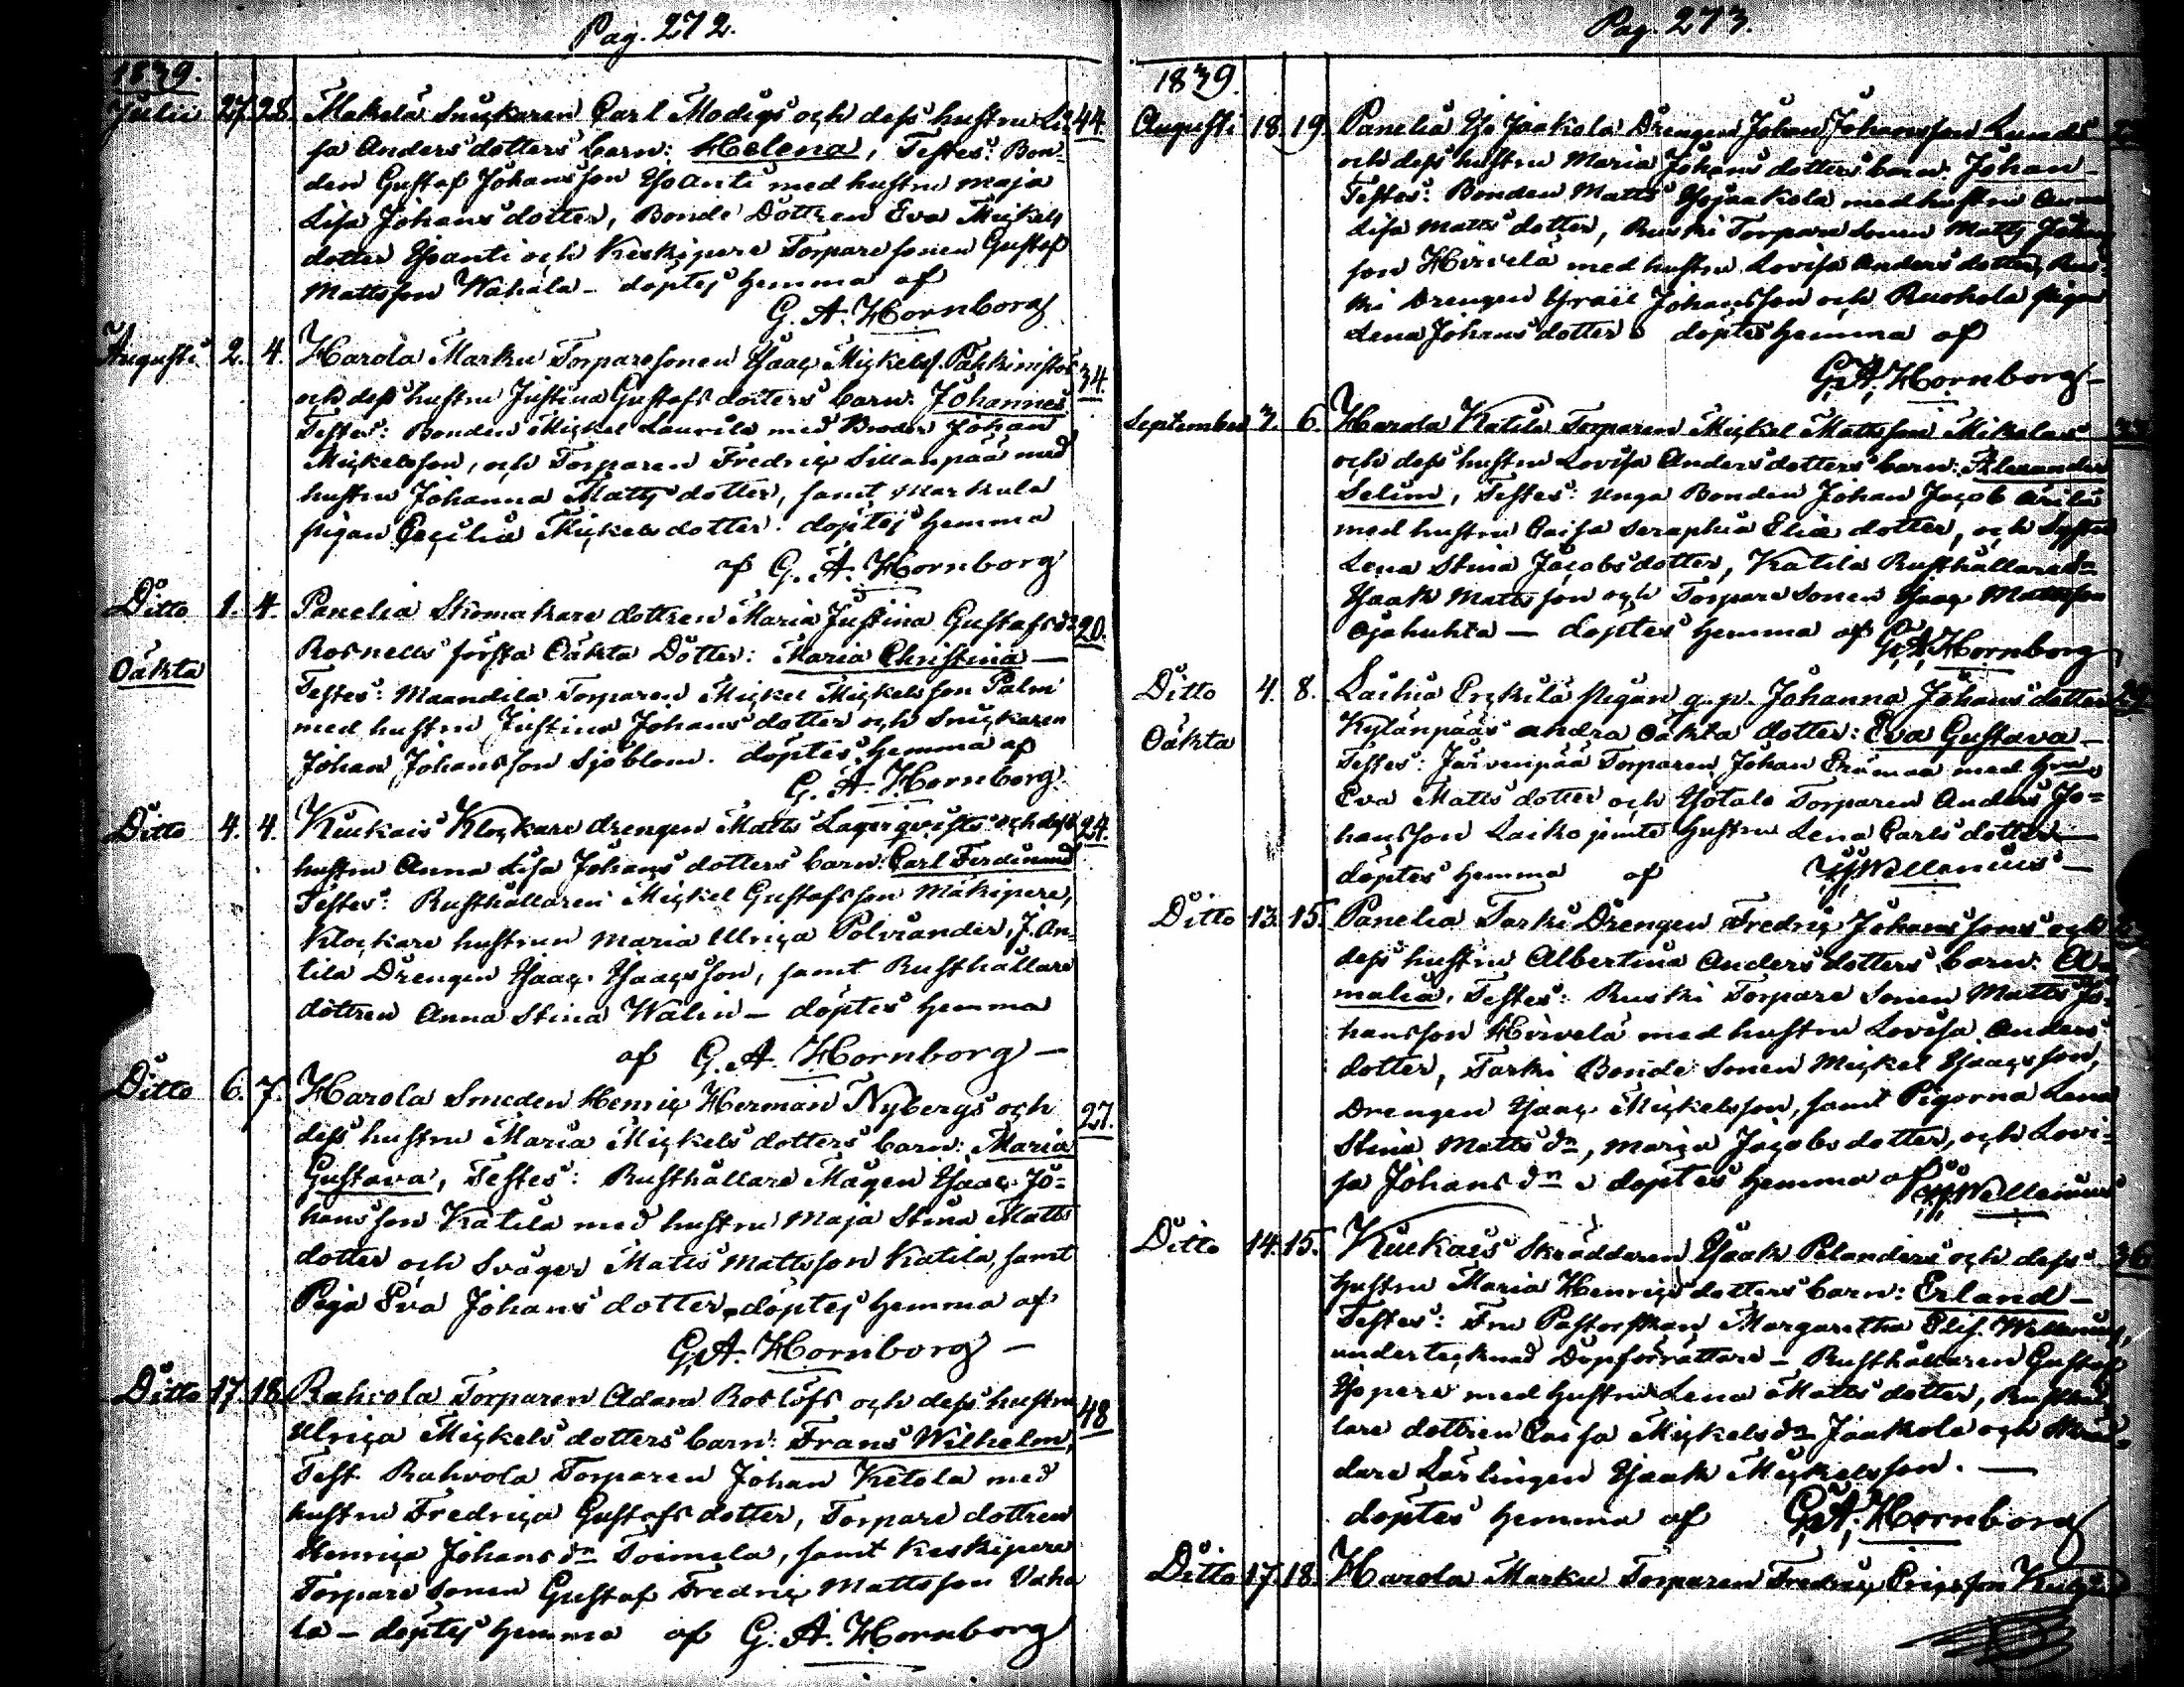 Pag. 272.
1839.
Julii 27. 28. Makola Snickaren Carl Modigs och dess hustru Li= 44.
sa Anders dotters barn: Helena, Testes: Bon=
den Gustaf Johansson Yso Anti med hustru Maja
Lisa Johans dotter, Bonde Dottren Eva Mickels
dotter Ysoanti och Keskipere Torpare sonen Gustaf
Mattsson Wahala – döptes hemma af
G. A. Hornborg
Augusti 2. 4. Harola Marku Torpare sonen Isaac Mickelss. Pahkimistos 34.
och dess hustru Justina Gustafs dotters barn: Johannes
Testes: Bonden Mickel Laurila med Broder Johan
Mickelsson, och Torparen Fredric Sillanpää med
hustru Johanna Matts dotter, samt Markula
pigan Cecilia Mickels dotter. döptes hemma
af G. A. Hornborg
Ditto 1. 4. Panelia Skomakare dottren Maria Justina Gustafsdr 20.
Oäkta
Rosnells första Oäkta Dotter: Maria Christina —
Testes: Maandila Torparen Mickel Mickelsson Palm
med hustru Justina Johans dotter och Snickaren
Johan Johansson Sjöblom. döptes hemma af
G. A. Hornborg.
Ditto 4. 4. Kiukais Klockare drengen Matts Lagerqvists och dess 24.
hustru Anna Lisa Johans dotters barn: Carl Ferdinand
Testes: Rusthållaren Mickel Gustafsson Mäkipere,
Klockare hustrun Maria Ulrica Polviander, J. An=
tila Drengen Isaac Isaacsson, samt Rusthållare
dottren Anna Stina Walin – döptes hemma
af G. A. Hornborg —
Ditto 6. 7. Harola Smeden Henric Herman Nybergs och 27.
dess hustru Maria Mickels dotters barn: Maria
Gustava, Testes: Rusthållare Mågen Isaac Jo=
hansson Katila med hustru Maja Stina Matts
dotter och Svåger Matts Mattsson Katila, samt
Piga Eva Johans dotter, döptes hemma af
G. A. Hornborg —
Ditto 17. 18. Rahvola Torparen Adam Roslöfs och dess hustru 48
Ulrica Mickels dotters barn: Frans Wilhelm,
Test. Rahvola Torparen Johan Ketola med
hustru Fredrica Gustafs dotter, Torpare dottren
Henrica Johans dr Toimela, samt Keskipere
Torpare sonen Gustaf Fredric Mattsson Vaha
la – döptes hemma af G. A. Hornborg
Pag. 273.
1839.
Augusti 18. 19. Panelia Yso Jaakola Drengen Johan Johansson Lunds
och dess hustru Maria Johans dotters barn: Johan —
Testes: Bonden Matts Ysojaakola med hustru Anna
Lisa Matts dotter, Ruski Torpare sonen Matts Johans
son Hirvelä med hustru Lovisa Anders dotter, Rus=
ki Drengen Israel Johansson och Ruohola pigan
Lena Johans dotter. döptes hemma af
G. A. Hornborg —
September 3. 6. Harola Katila Torparen Mickel Mattsson Mikolas
och dess hustru Lovisa Anders dotters barn: Alexander
Selim, Testes: Unga Bonden Johan Jacob Arila
med hustru Caisa Seraphia Eliæ dotter, och Syster
Lena Stina Jacobs dotter, Katila Rusthållare sn
Isaak Mattsson och Torpare Sonen Isaac Mattsson
Ojahuhta — döptes hemma af G. A. Hornborg
Ditto 4. 8. Laihia Erckilä pigan q. p. Johanna Johans dotter
Oäkta
Kylänpääs andra Oäkta dotter: Eva Gustava —
Testes: Järvenpää Torparen Johan Erämaa med hru
Eva Matts dotter och Ysotalo Torparen Anders Jo=
hansson Laiko jemte hustru Lena Carls dotter —
döptes hemma af Wellenius —
Ditto 13. 15. Panelia Tarki Drengen Fredric Johanssons och
dess hustru Albertina Anders dotters barn: A=
malia, Testes: Ruski Torpare Sonen Matts Jo=
hansson Hirvelä med hustru Lovisa Anders
dotter, Tarki Bonde Sonen Mickel Isaacsson,
Drengen Isaac Mickelsson, samt Pigorna Lena
Stina Matts dr, Maria Jacobs dotter, och Lovi=
sa Johans dr. döptes hemma af Wellenius
Ditto 14. 15. Kiukais Skräddaren Isaak Pelanders och dess 36
hustru Maria Henrics dotters barn: Erland —
Testes: Fru Pastorskan Margaretha Elis. Wellenius,
undertecknad Dopförrättare – Rusthållaren Gustaf
Ysopere med hustru Lena Matts dotter, Rusthål=
lare dottren Caisa Mickels dr Jaakola och Skräd=
dare Lärlingen Isaak Mickelsson. —
döptes hemma af G. A. Hornborg
Ditto 17. 18. Harola Marku Torparen Fredric Ericsson